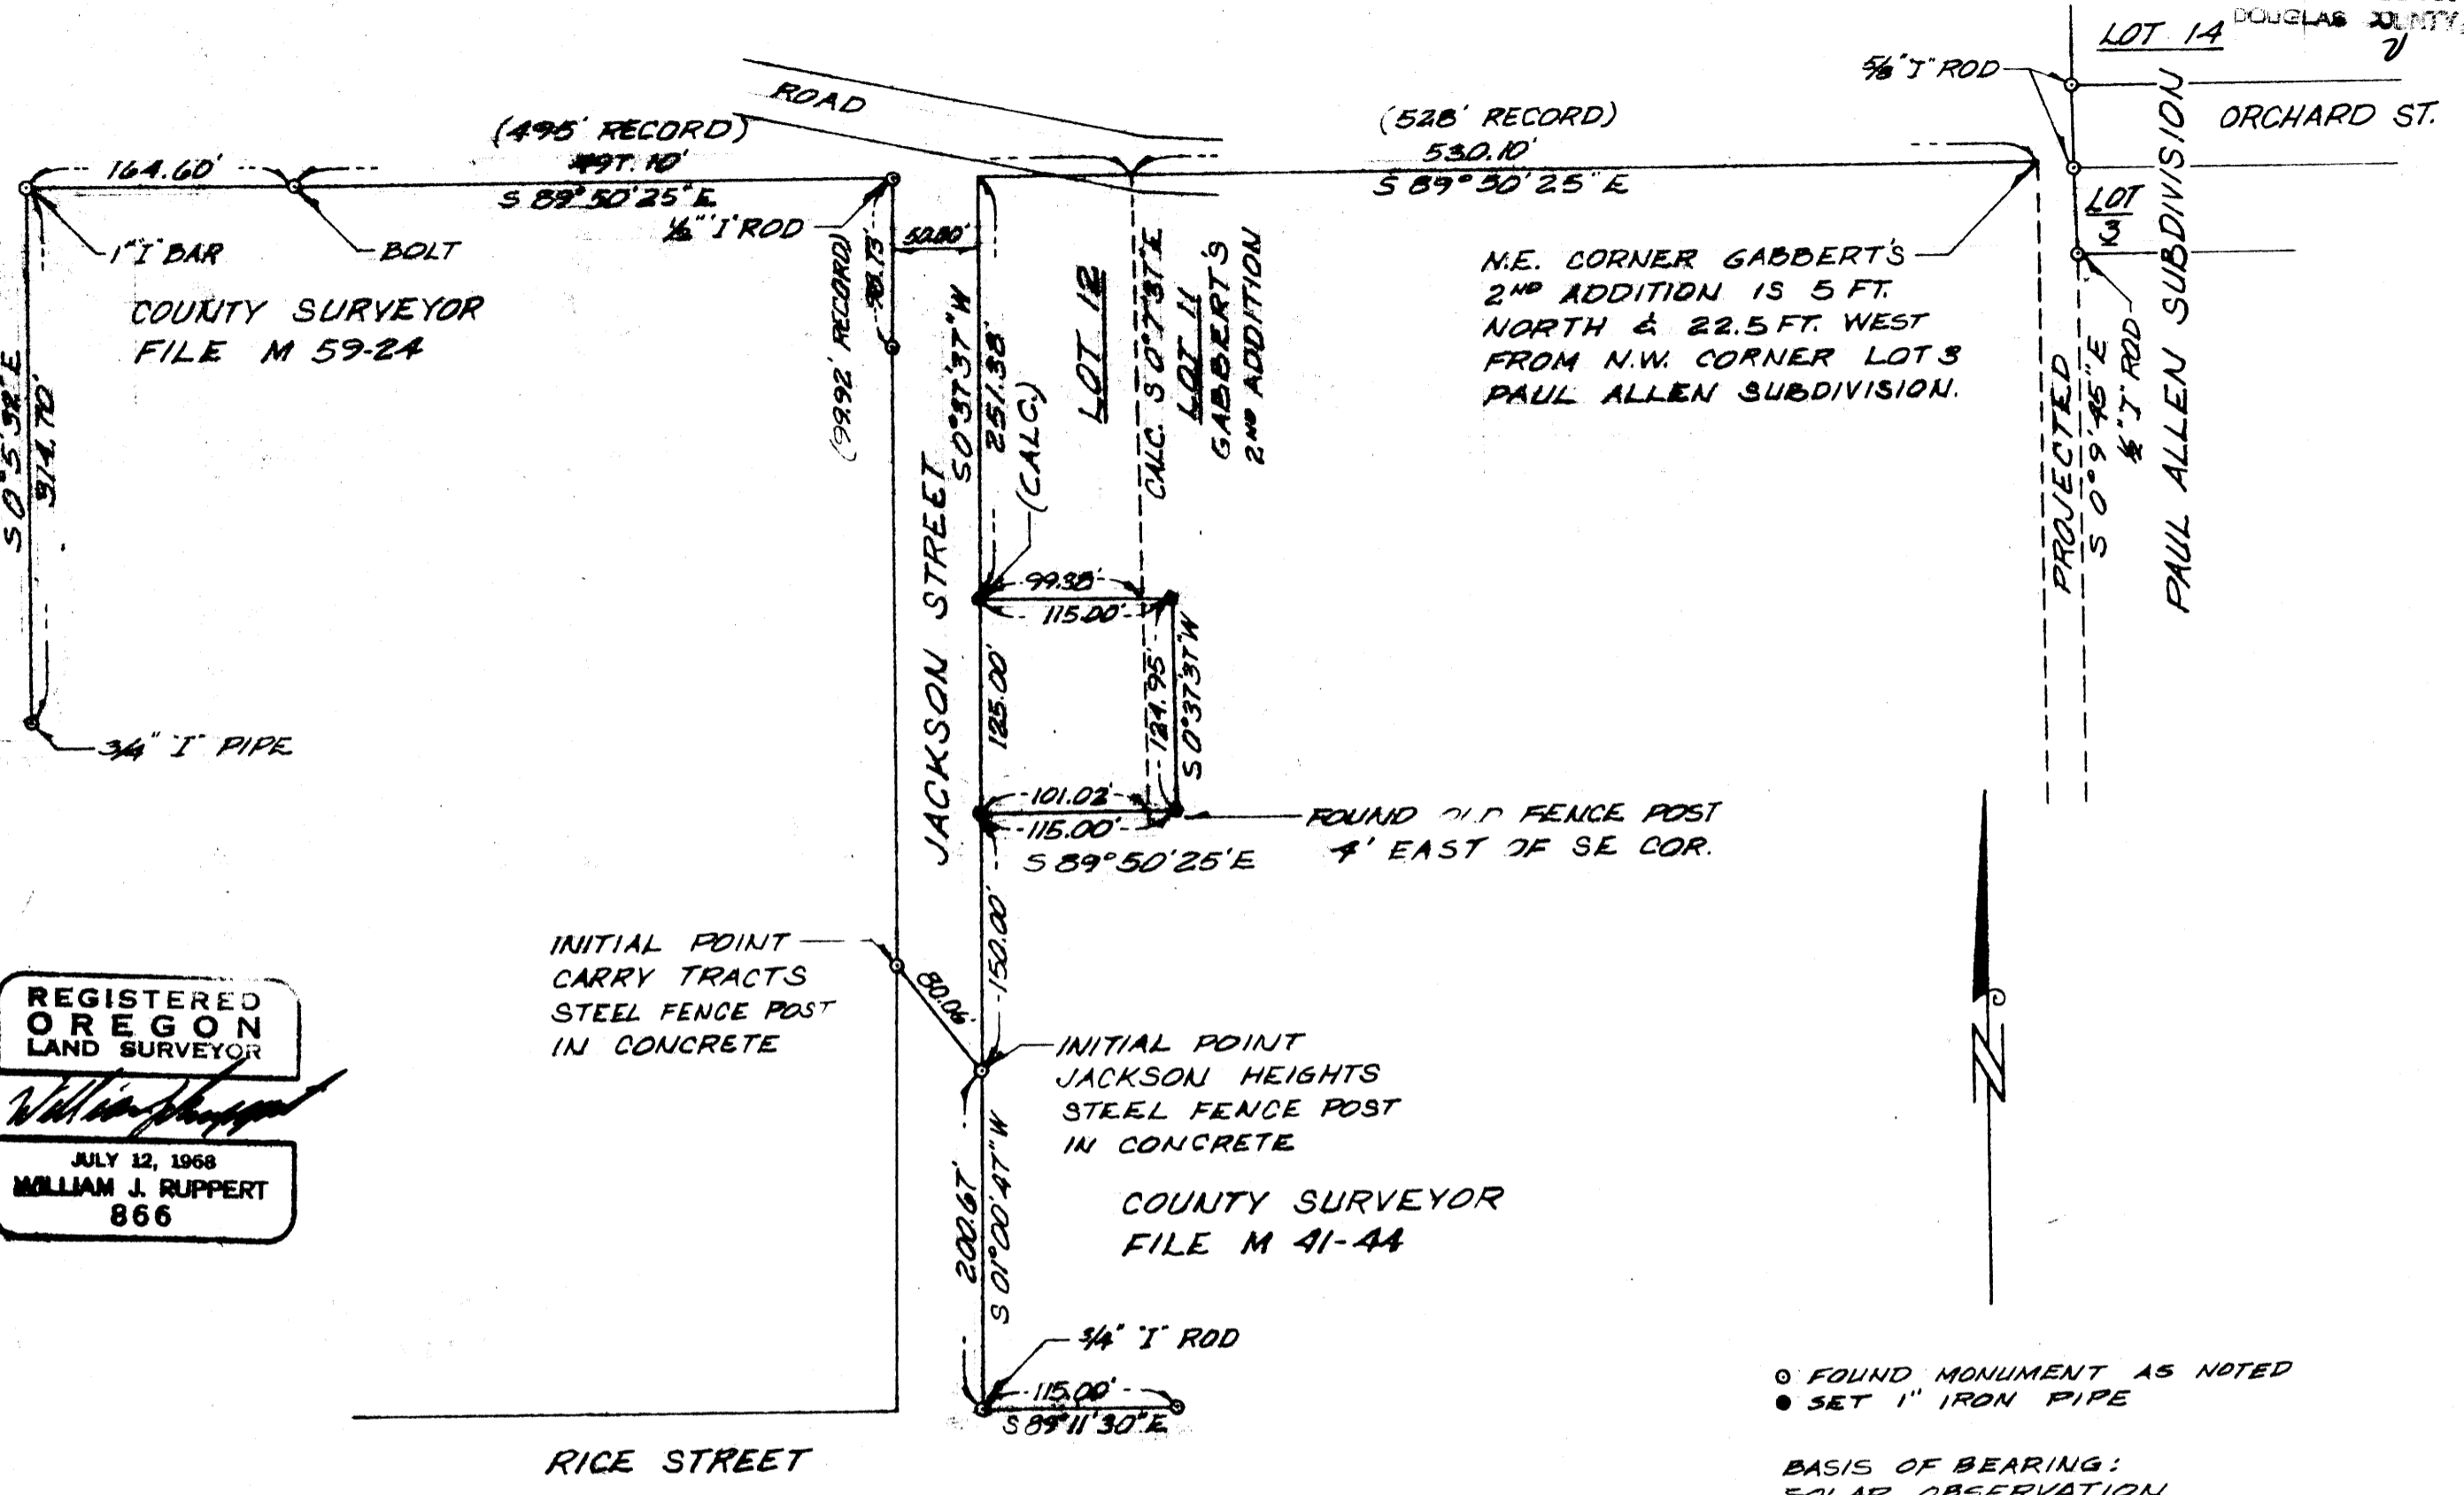 DOUGLAS COUNTY
LOT 14
5/8" "I" ROD
ORCHARD ST.
ROAD
(495' RECORD)
497.10'
S 89°50'25"E
164.60'
(528' RECORD)
530.10'
S 89°50'25"E
1" "I" BAR
BOLT
1/2" "I" ROD
50.00'
98.73'
(99.92' RECORD)
COUNTY SURVEYOR
FILE M 59-24
S 0°5'32"E
314.70'
3/4" "I" PIPE
JACKSON STREET
S 0°37'37"W
251.38'
(CALC.)
LOT 12
CALC. S 0°7'37"E
LOT 11
GABBERT'S
2ND ADDITION
N.E. CORNER GABBERT'S
2ND ADDITION IS 5 FT.
NORTH & 22.5 FT. WEST
FROM N.W. CORNER LOT 3
PAUL ALLEN SUBDIVISION.
LOT
3
PROJECTED
S 0°9'45"E
1/2" "I" ROD
PAUL ALLEN SUBDIVISION
99.38'
115.00'
125.00'
124.95'
S 0°37'37"W
101.02'
115.00'
S 89°50'25"E
FOUND OLD FENCE POST
4' EAST OF SE COR.
150.00'
INITIAL POINT
CARRY TRACTS
STEEL FENCE POST
IN CONCRETE
80.06
INITIAL POINT
JACKSON HEIGHTS
STEEL FENCE POST
IN CONCRETE
REGISTERED
OREGON
LAND SURVEYOR
JULY 12, 1968
WILLIAM J. RUPPERT
866
200.67'
S 01°00'47"W
COUNTY SURVEYOR
FILE M 41-44
3/4" "I" ROD
115.00'
S 89°11'30"E
RICE STREET
N
FOUND MONUMENT AS NOTED
SET 1" IRON PIPE
BASIS OF BEARING:
SOLAR OBSERVATION